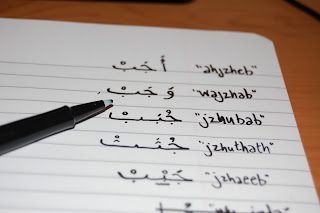 أَجَبْ "ahjzheb"
وَجَبْ "wajzhab"
جُبَبْ "jzhubab"
جُثَثْ "jzhuthath"
جَيْبْ "jzhaeeb"